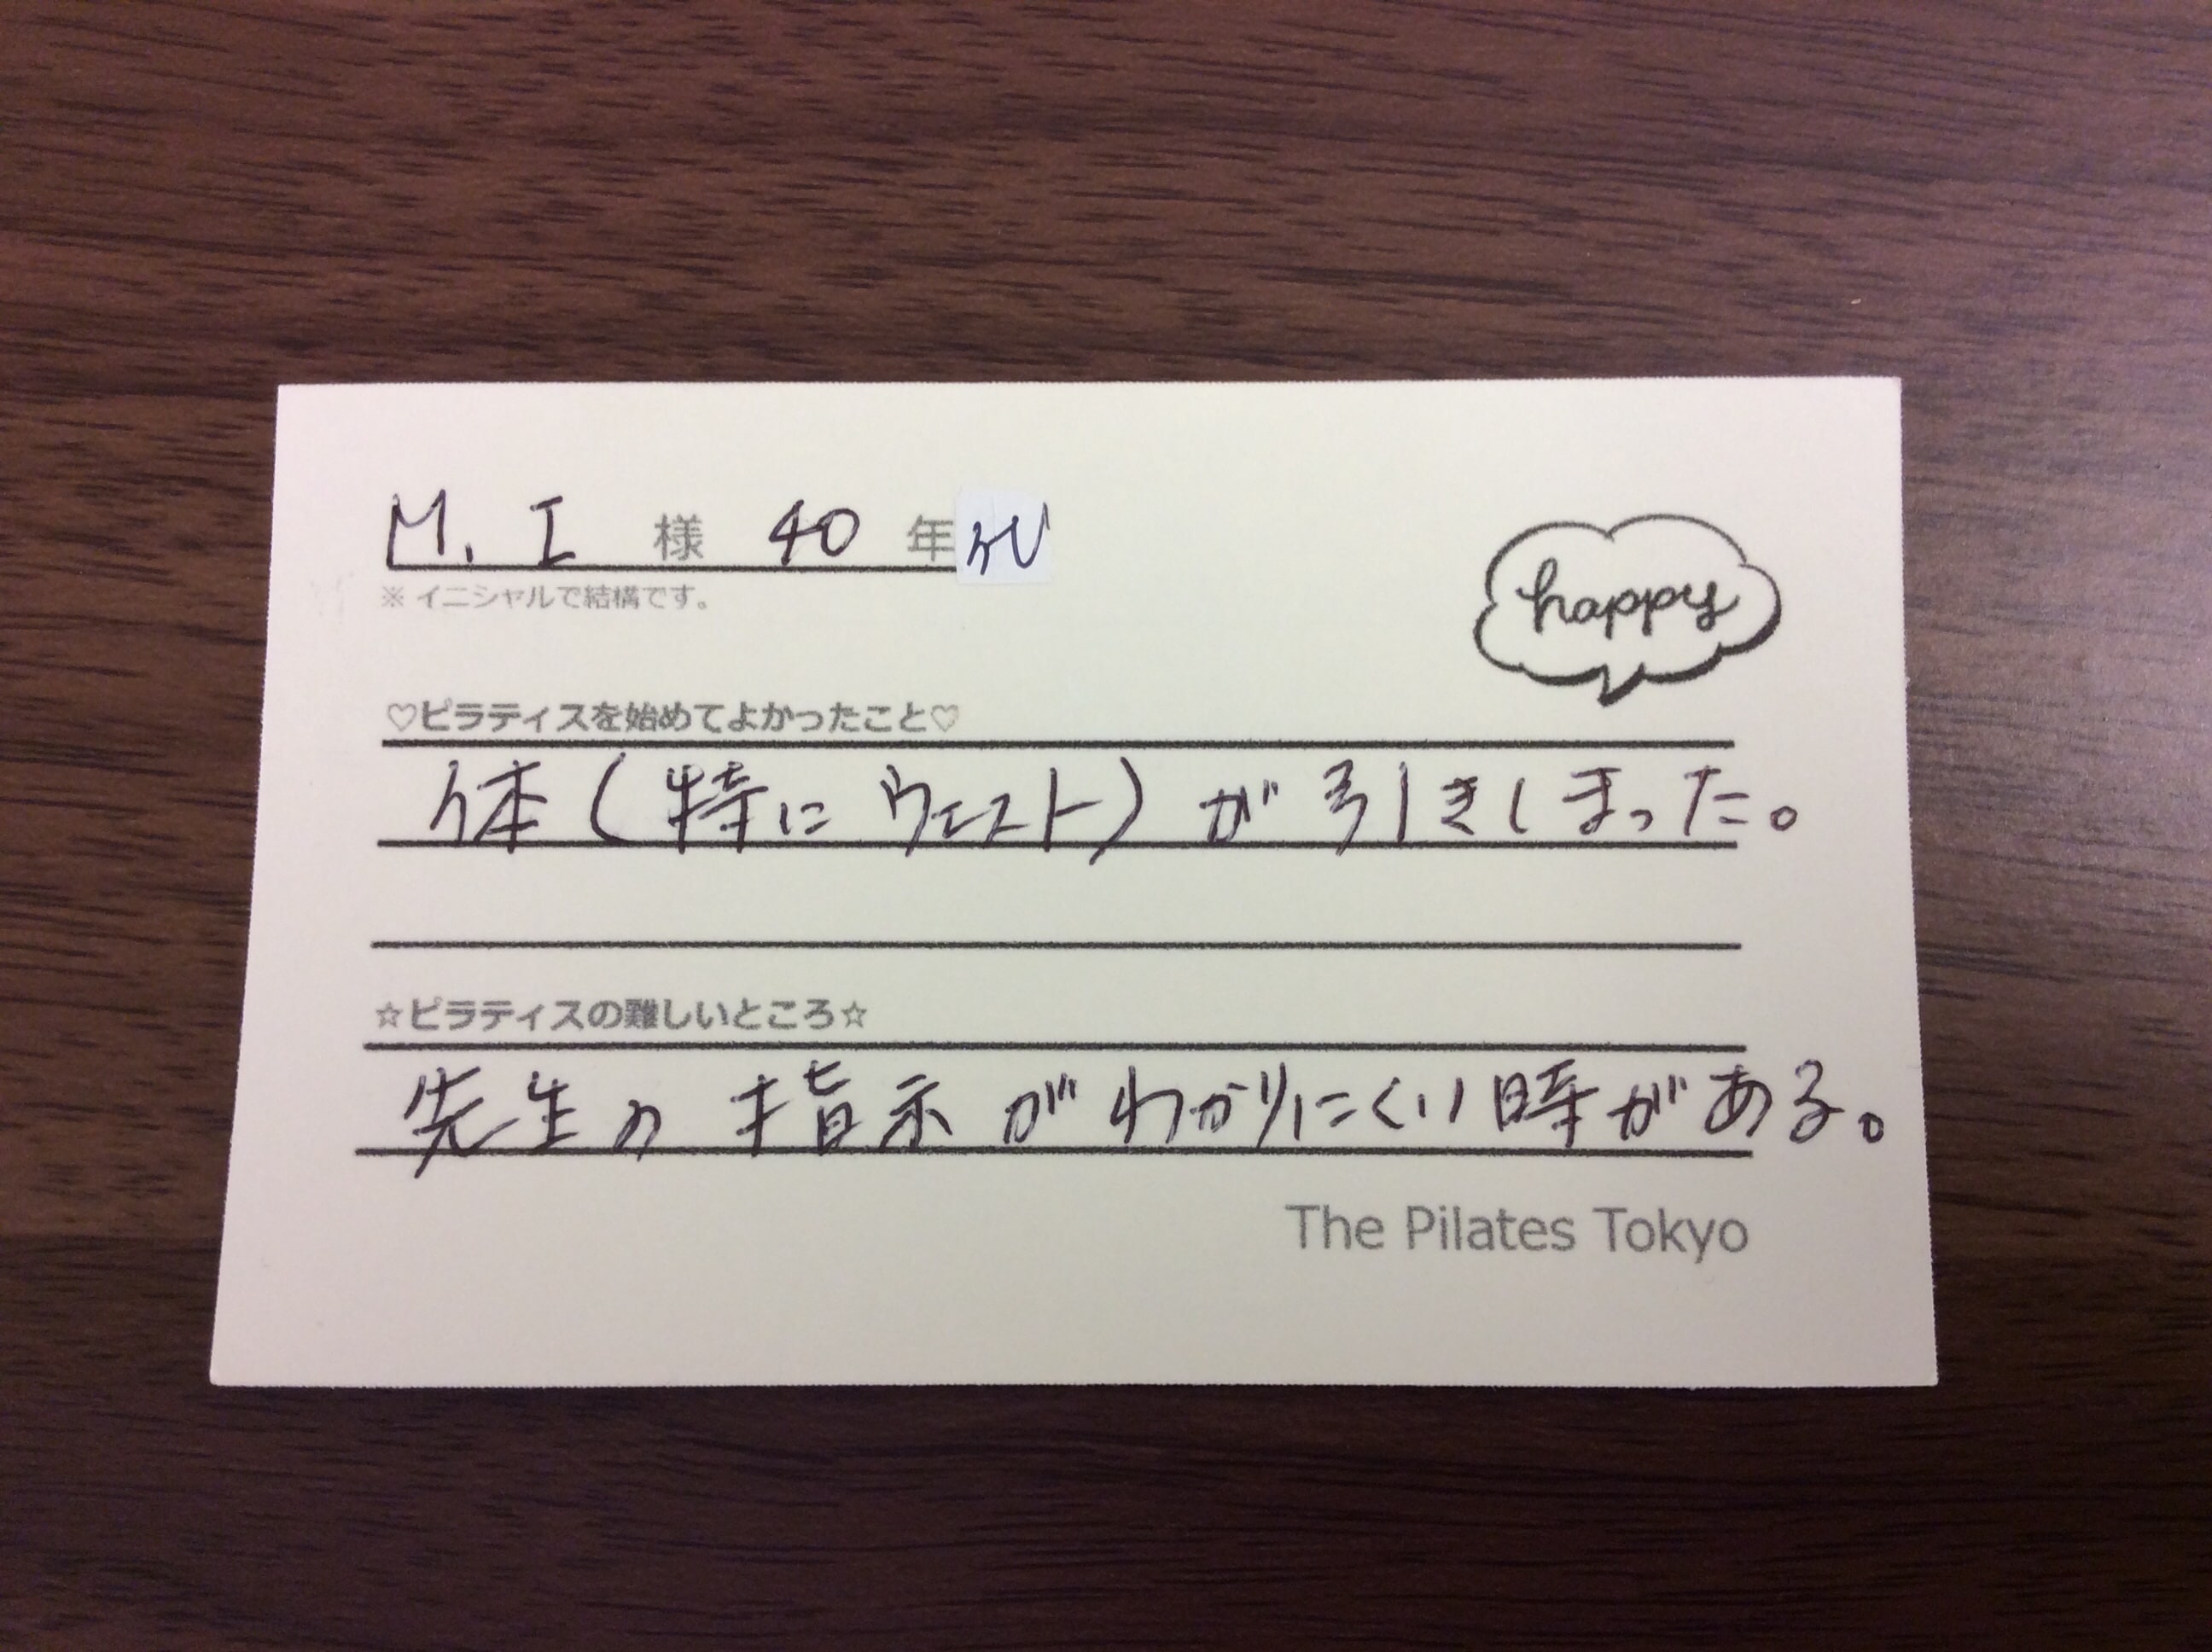 M. I 様 40 年代
※ イニシャルで結構です。
happy
♡ピラティスを始めてよかったこと♡
体(特にウエスト)が引きしまった。
☆ピラティスの難しいところ☆
先生の指示がわかりにくい時がある。
The Pilates Tokyo